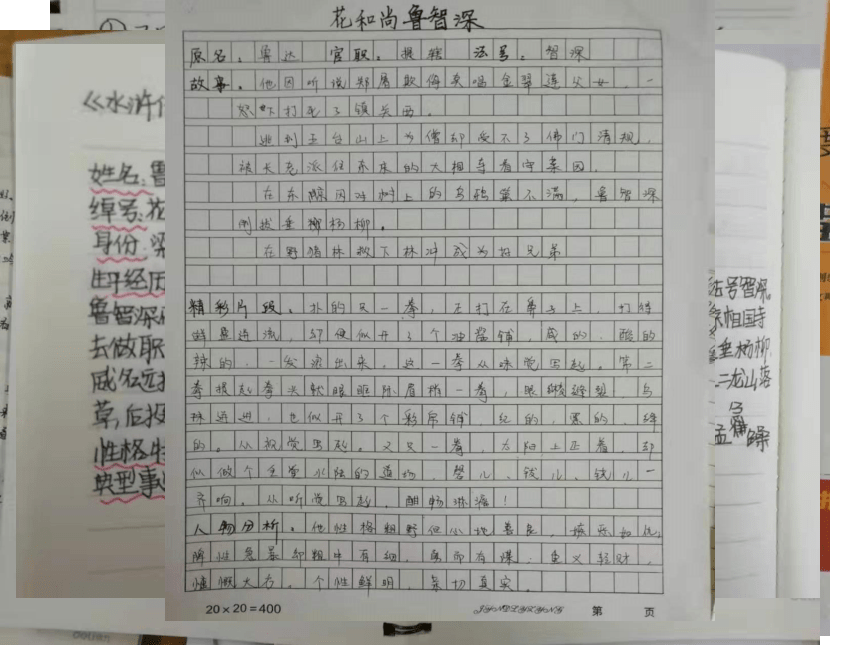 花和尚鲁智深
原名：鲁达 官职：提辖 法号：智深
故事：他因听说郑屠欺侮卖唱金翠莲父女，一
怒下打死了镇关西。
逃到五台山上当僧却受不了佛门清规，
被长老派往东京的大相寺看守菜园。
在东隔因对树上的乌鸦巢不满，鲁智深
倒拔垂柳杨柳。
在野猪林救下林冲成为好兄弟
精彩片段：扑的只一拳，正打在鼻子上，打得
鲜血迸流，却便似开了个油酱铺，咸的、酸的
辣的，一发滚出来。这一拳从味觉写起。第二
拳提起拳头就眼眶际眉梢一拳，眼棱缝裂，乌
珠迸进，也似开了个彩帛铺，红的、黑的、绛
的。从视觉写起。又只一拳，太阳上正着，却
似做个全堂水陆的道场，磬儿、钹儿、铙儿一
齐响。从听觉写起，酣畅淋漓！
人物分析：他性格粗野但心地善良，嫉恶如仇，
脾性急暴却粗中有细，勇而有谋；重义轻财，
慷慨大方，个性鲜明，亲切真实。
20×20=400
第 页
《水浒
姓名：鲁
绰号：花
身份：
生平经历
鲁智深
去做职
威名远
草，后投
性格特
典型事
法号智深。
相国寺
垂杨柳，
二龙山落
deli